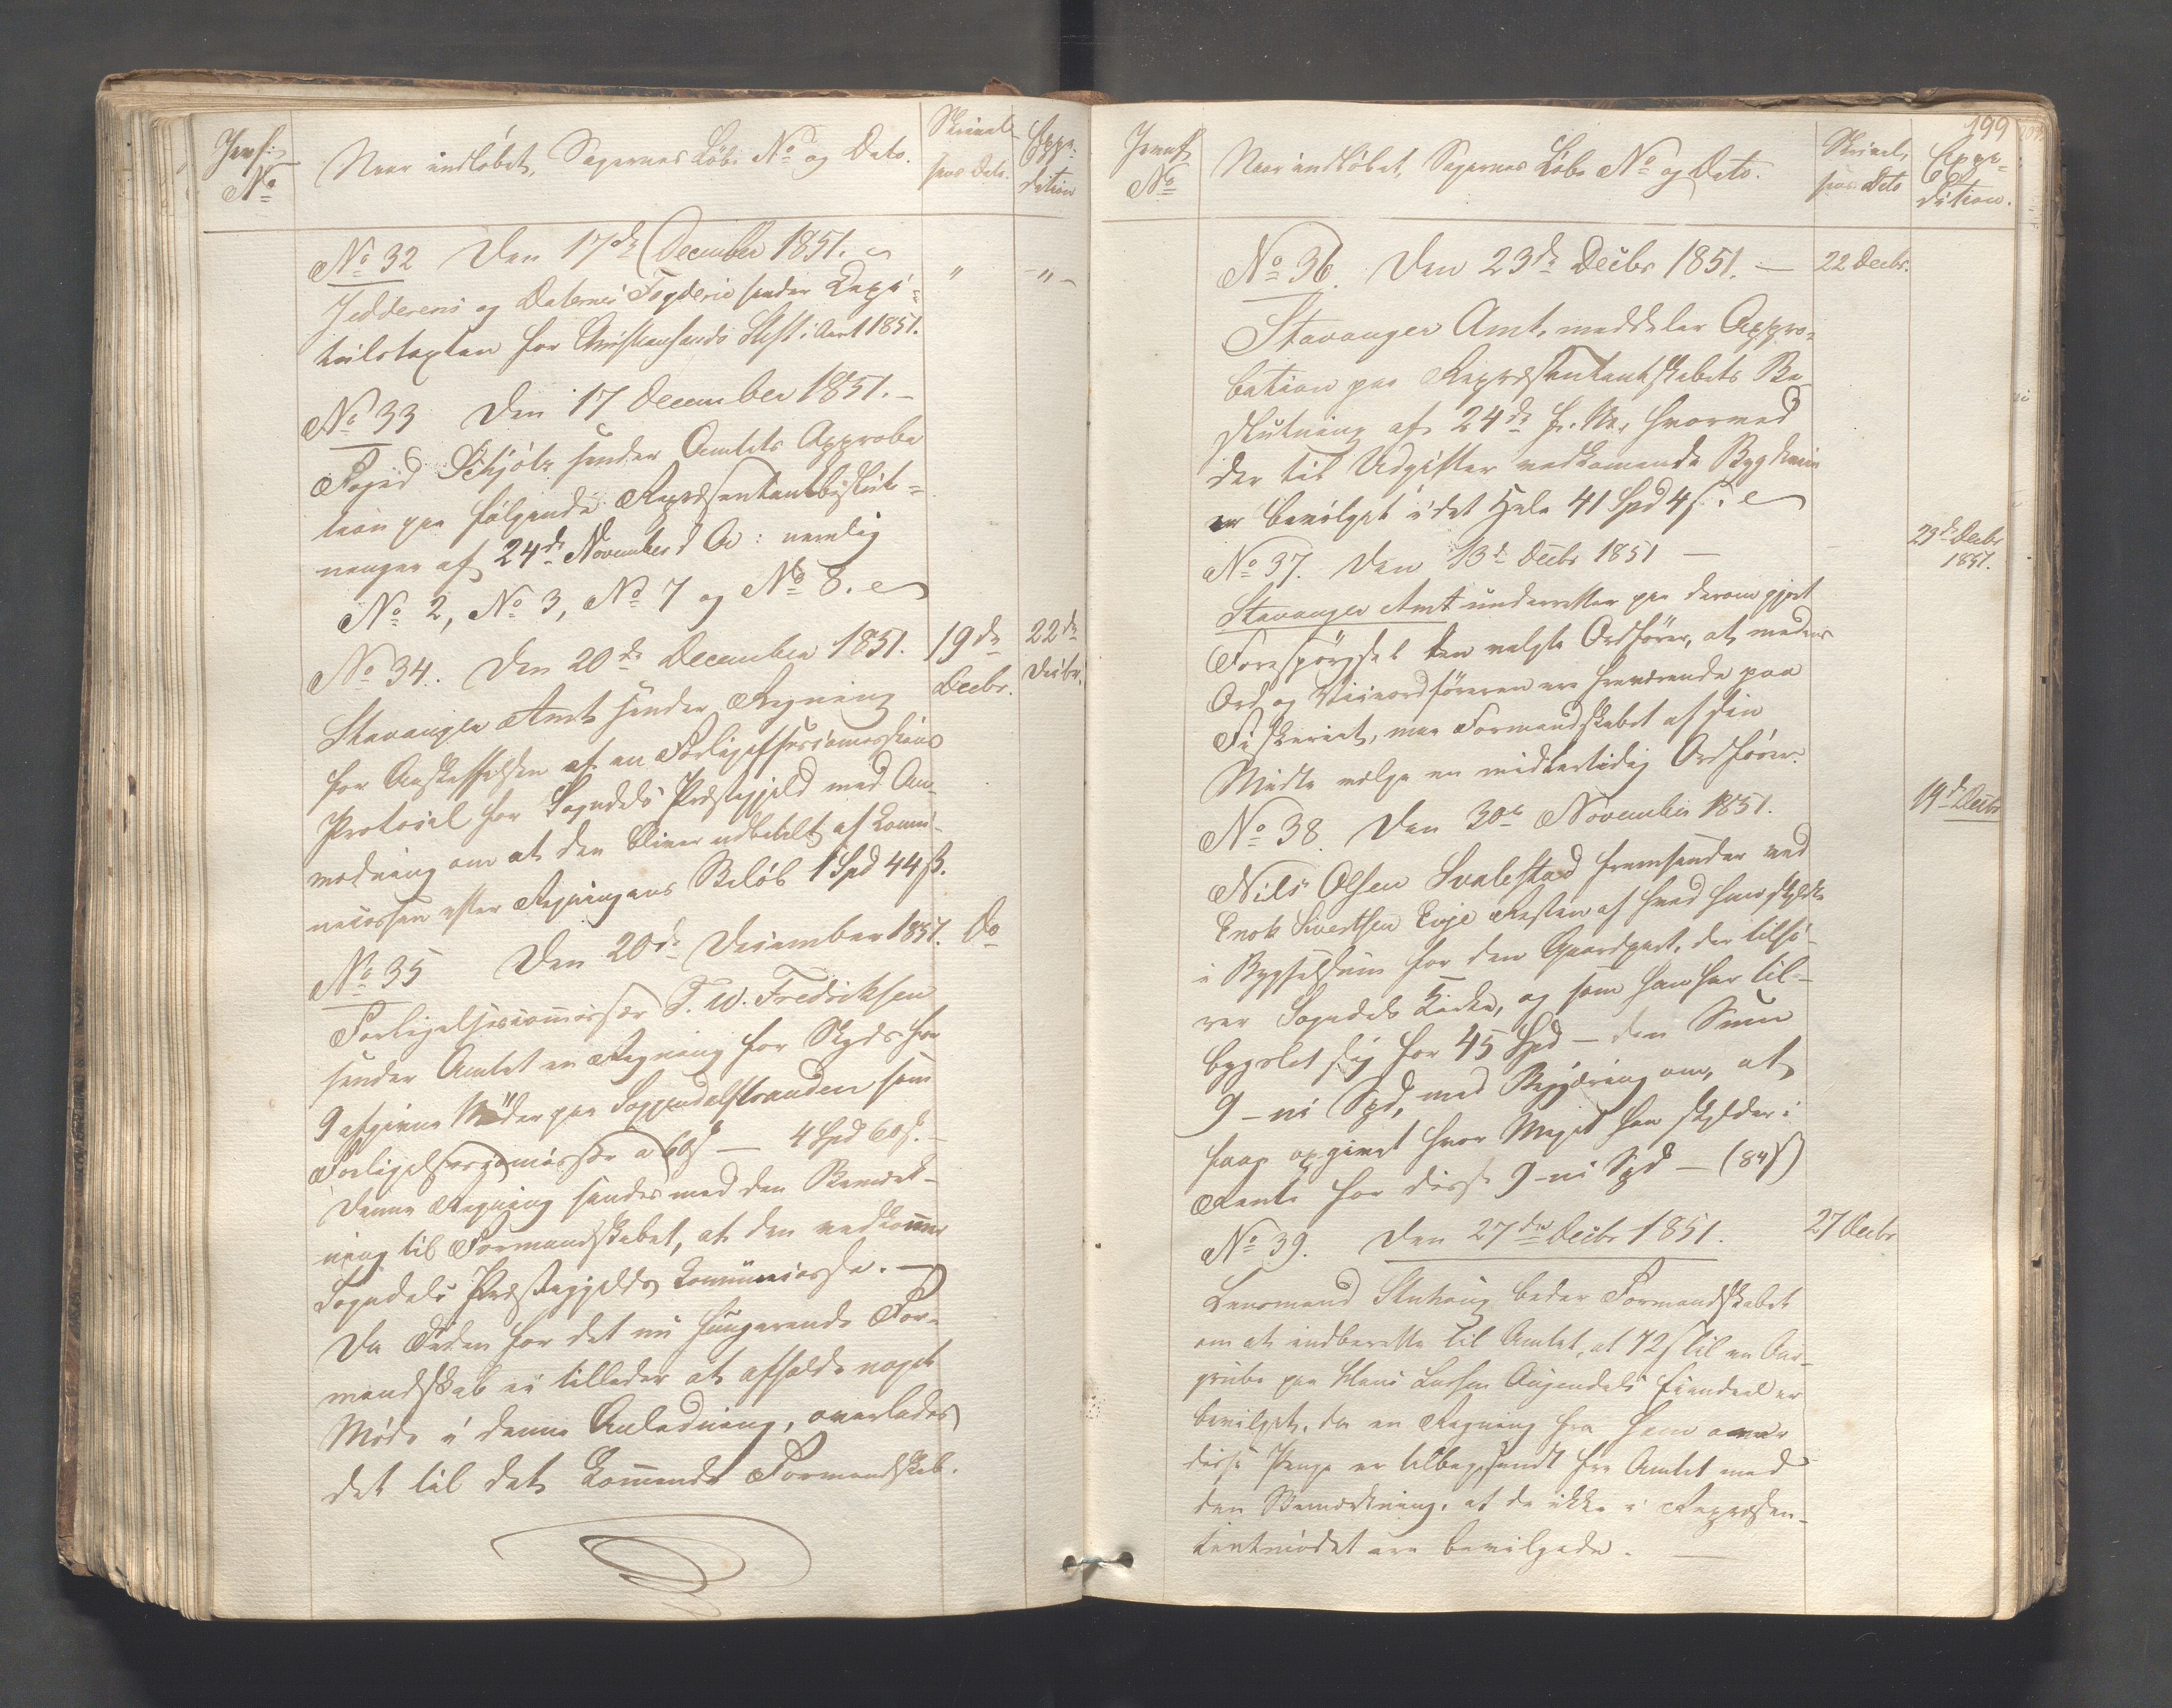 Jevnf:
No
Naar indløbet, Sagernes Løbe No og Dato.
Skrivel-
sens Dato.
Expe-
dition
No 32 Den 17de December 1851.
Jedderens og Dalernes Fogderie sender Kapi-
telstaxten for Christiansands Stift i Aaret 1851.
" - " -
No 33 Den 17 December 1851. -
Foged Schjøtz sender Amtets Approba
tion paa følgende Repræsentantbeslut-
ninger af 24de November d Ar: nemlig
No 2, No 3, No 7 og No 8.
No 34. Den 20de December 1851.
19de
Decbr.
22de
Decbr.
Stavanger Amt sender Regning
for Anskaffelsen af en Forligelsescommissions
Protocol for Sogndals Præstegjeld med An-
modning om at den bliver udbetalt af Commu-
necassen efter Regningens Beløb 1 Spd 44 ß.
No 35 Den 20de December 1851.
Do
Forligelsescommissær T. W. Fredriksen
sender Amtet en Regning for Skyds for
9 afgivne Møder paa Soggendalsstranden som
Forligelsescomissær a 60 ß — 4 Spd 60 ß. -
Denne Regning sendes med den Bemærk-
ning til Formandskabet, at den vedkommer
Sogndals Præstegjelds Communecasse. —
Da Tiden for det nu fungerende For-
mandskab ei tillader at afholde noget
Møde i denne Anledning, overlades
det til det kommende Formandskab.
199
Jevnf
No
Naar indløbet, Sagernes Løbe No og Dato.
Skrivel,
sens Dato
Expe-
dition.
No 36. Den 23de Decbr 1851. —
22 Decbr.
Stavanger Amt, meddeler Appro-
bation paa Repræsentantskabets Be
slutning af 24de f. M., hvorved
der til Udgifter vedkomende
er bevilget i det Hele 41 Spd 4 ß.
No 37. Den 13de Decbr 1851 —
23de Decbr
1851.
Stavanger Amt underretter paa derom gjort
Forespørgsel den valgte Ordfører, at medens
Ord og Viceordføreren ere fraværende paa
Fiskeriet, maa Formandskabet af sin
Midte vælge en midlertidig Ordfører.
No 38. Den 30te November 1851.
19de Decbr
Nils Olsen Svalestad fremsender ved
Enok Sivertsen Eeje Resten af hvad han skyldte
i Bygselsum for den Gaardpart, der tilhø-
rer Sogndals Kirke, og som han har til-
bygslet sig for 45 Spd — den Sum
9 - ni Spd, med Begjæring om, at
faae opgivet hvor Meget han skylder i
Rente for disse 9 - ni Spd — (84 ß)
No 39. Den 27de Decbr 1851.
27 Decbr
Lensmand beder Formandskabet
om at indberette til Amtet, at 72 ß til en
grube paa Hans Larsen Eiendeel er
bevilget, da en Regning fra ham over
disse Penge er tilbagesendt fra Amtet med
den Bemærkning, at de ikke i Repræsen-
tantmødet ere bevilgede. —